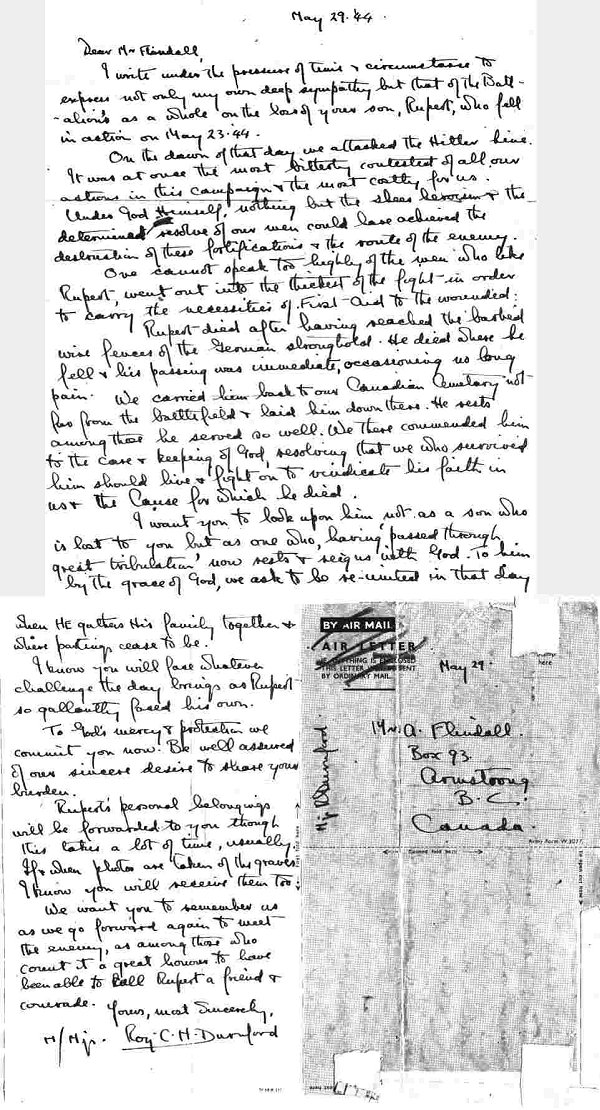 May 29. '44
Dear Mr Flindall,
I write under the pressure of time & circumstance to
express not only my own deep sympathy but that of the Batt-
-alion's as a whole on the loss of your son, Rupert, who fell
in action on May 23.44.
On the dawn of that day we attacked the Hitler line.
It was at once the most bitterly contested of all our
actions in this campaign & the most costly for us.
Under God Himself, nothing but the sheer heroism & the
determined resolve of our men could have achieved the
destruction of these fortifications & the route of the enemy.
One cannot speak too highly of the men who like
Rupert, went out into the thickest of the fight in order
to carry the necessities of First-Aid to the wounded:
Rupert died after having reached the barbed
wire fences of the German stronghold. He died where he
fell & his passing was immediate, occasioning no long
pain. We carried him back to our Canadian Cemetary not
far from the battlefield & laid him down there. He rests
among those he served so well. We there commended him
to the care & keeping of God, resolving that we who survived
him should live & fight on to vindicate his faith in
us & the Cause for which he died.
I want you to look upon him, not as a son who
is lost to you but as one who, having 'passed through
great tribulation' now rests & reigns with God. To him
by the grace of God, we ask to be re-united in that day
when HE gathers His family together &
where partings cease to be.
I know you will face whatever
challenge the day brings as Rupert
so gallantly faced his own.
To God's mercy & protection we
commit you now. Be well assured
of our sincere desire to share your
burden.
Rupert's personal belongings
will be forwarded to you though
this takes a lot of time, usually.
If & when photos are taken of the graves
I know you will receive them too.
We want you to remember us
as we go forward again to meet
the enemy, as among those who
count it a great honour to have
been able to call Rupert a friend &
comrade.
Yours, most Sincerely,
H/Mjr. Roy C. H. Durnford
BY AIR MAIL
AIR LETTER
IF ANYTHING IS ENCLOSED
THIS LETTER WILL BE SENT
BY ORDINARY MAIL.
here
May 29.
Mr. A. Flindall.
Box 93.
Armstrong
B.C.
Canada.
Army Form W3077
Second fold here
To open cut here
H/Mjr RDurnford.